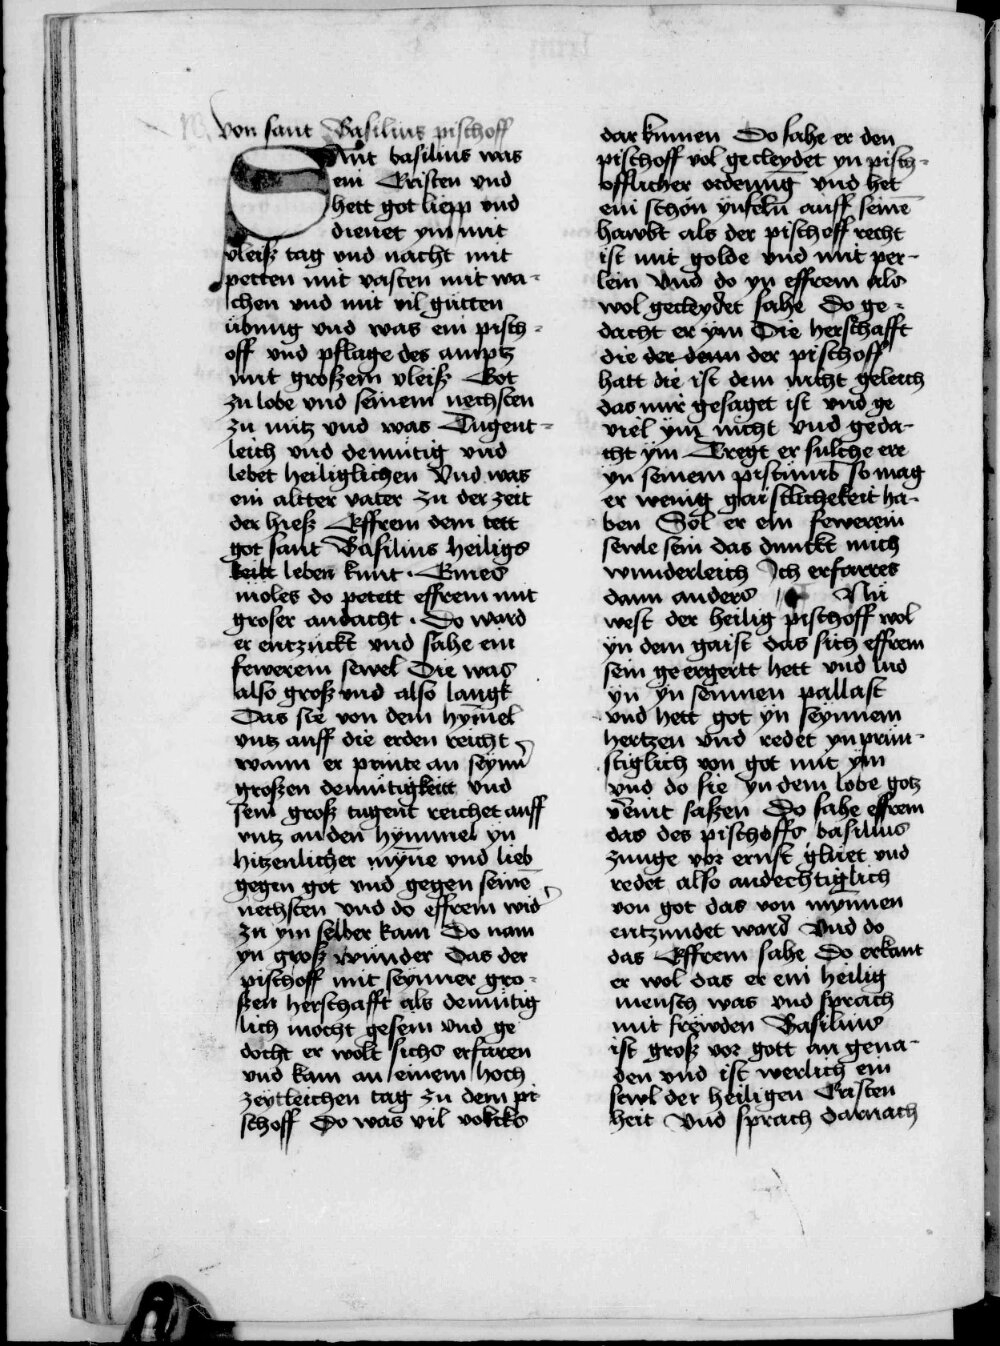 von sant Basilius pischoff
Sant basilius was
ein Cristen und
hett got liepp vnd
dienet ym mit
vleiß tag vnd nacht mit
petten mit vasten mit wa-
chen vnd mit vil gutten
übung vnd was ein pisch-
off vnd pflage des amptz
mit großem vleiß Got
zu lobe vnd seinem nechsten
zu nutz vnd was Tugent-
leich vnd demutig vnd
lebet heiliglichen Vnd was
ein altter vater zu der zeit
der hieß Effrem dem tett
got sant Basilius heiligs
leben kunt. Eines
moles do petett effrem mit
groser andacht. Do ward
er entzuckt vnd sahe ein
fewerein sewel Die was
also groß vnd also langk
Das sie von dem hymel
vntz auff die erden reicht
wann er printe an seynr
großen demutigkeitt vnd
sein groß tugent reichet auff
vntz an den hymmel yn
hitzenlicher myne vnd lieb
gegen got vnd gegen seinē
nechsten vnd do effrem wid
zu ym selber kam Do nam
yn groß wunder Das der
pischoff mit seynner gro-
ßen herschafft als demutig
lich mocht gesein vnd ge
docht er wolt sichs erfaren
vnd kam an einem hoch
zeytleichen tag zu dem pi
schoff Do was vil volcks
dar kumen Do sahe er den
pischoff vol gecleydet yn pisch-
offlicher ordenūg vnd het
ein schon ynfeln auff seinē
hawbt als der pischoff recht
ist mit golde vnd mit per-
lein Vnd do yn effrem als
wol gecleydet sahe Do ge-
dacht er ym Die herschafft
die der denn der pischoff
hatt die ist dem nicht geleich
das mir gesaget ist vnd ge
viel ym nicht vnd geda-
cht ym Tregt er sulche ere
yn seinem pistumb so mag
er wenig gaistlichekeit ha-
ben Sol er ein fewerein
sewle sein das dunckt mich
wunderleich Ich erfarres
dann anders Nu
west der heilig pischoff wol
yn dem gaist das sich effrem
sein geergertt hett vnd lud
yn yn seinnen pallast
vnd hett got yn seynnem
hertzen vnd redet yn prun-
stiglich von got mit ym
vnd do sie yn dem lobe gotz
vereint saßen Do sahe effrem
das des pischoffs basilius
zunge vor ernst gluet vnd
redet also andechtiglich
von got das von mynnen
entzundet ward Vnd do
das Effrem sahe Do erkant
er wol das er ein heilig
mensch was vnd sprach
mit frewden Basilius
ist groß vor gott an gena-
den vnd ist werlich ein
sewl der heiligen Cristen
heit Vnd sprach darnach